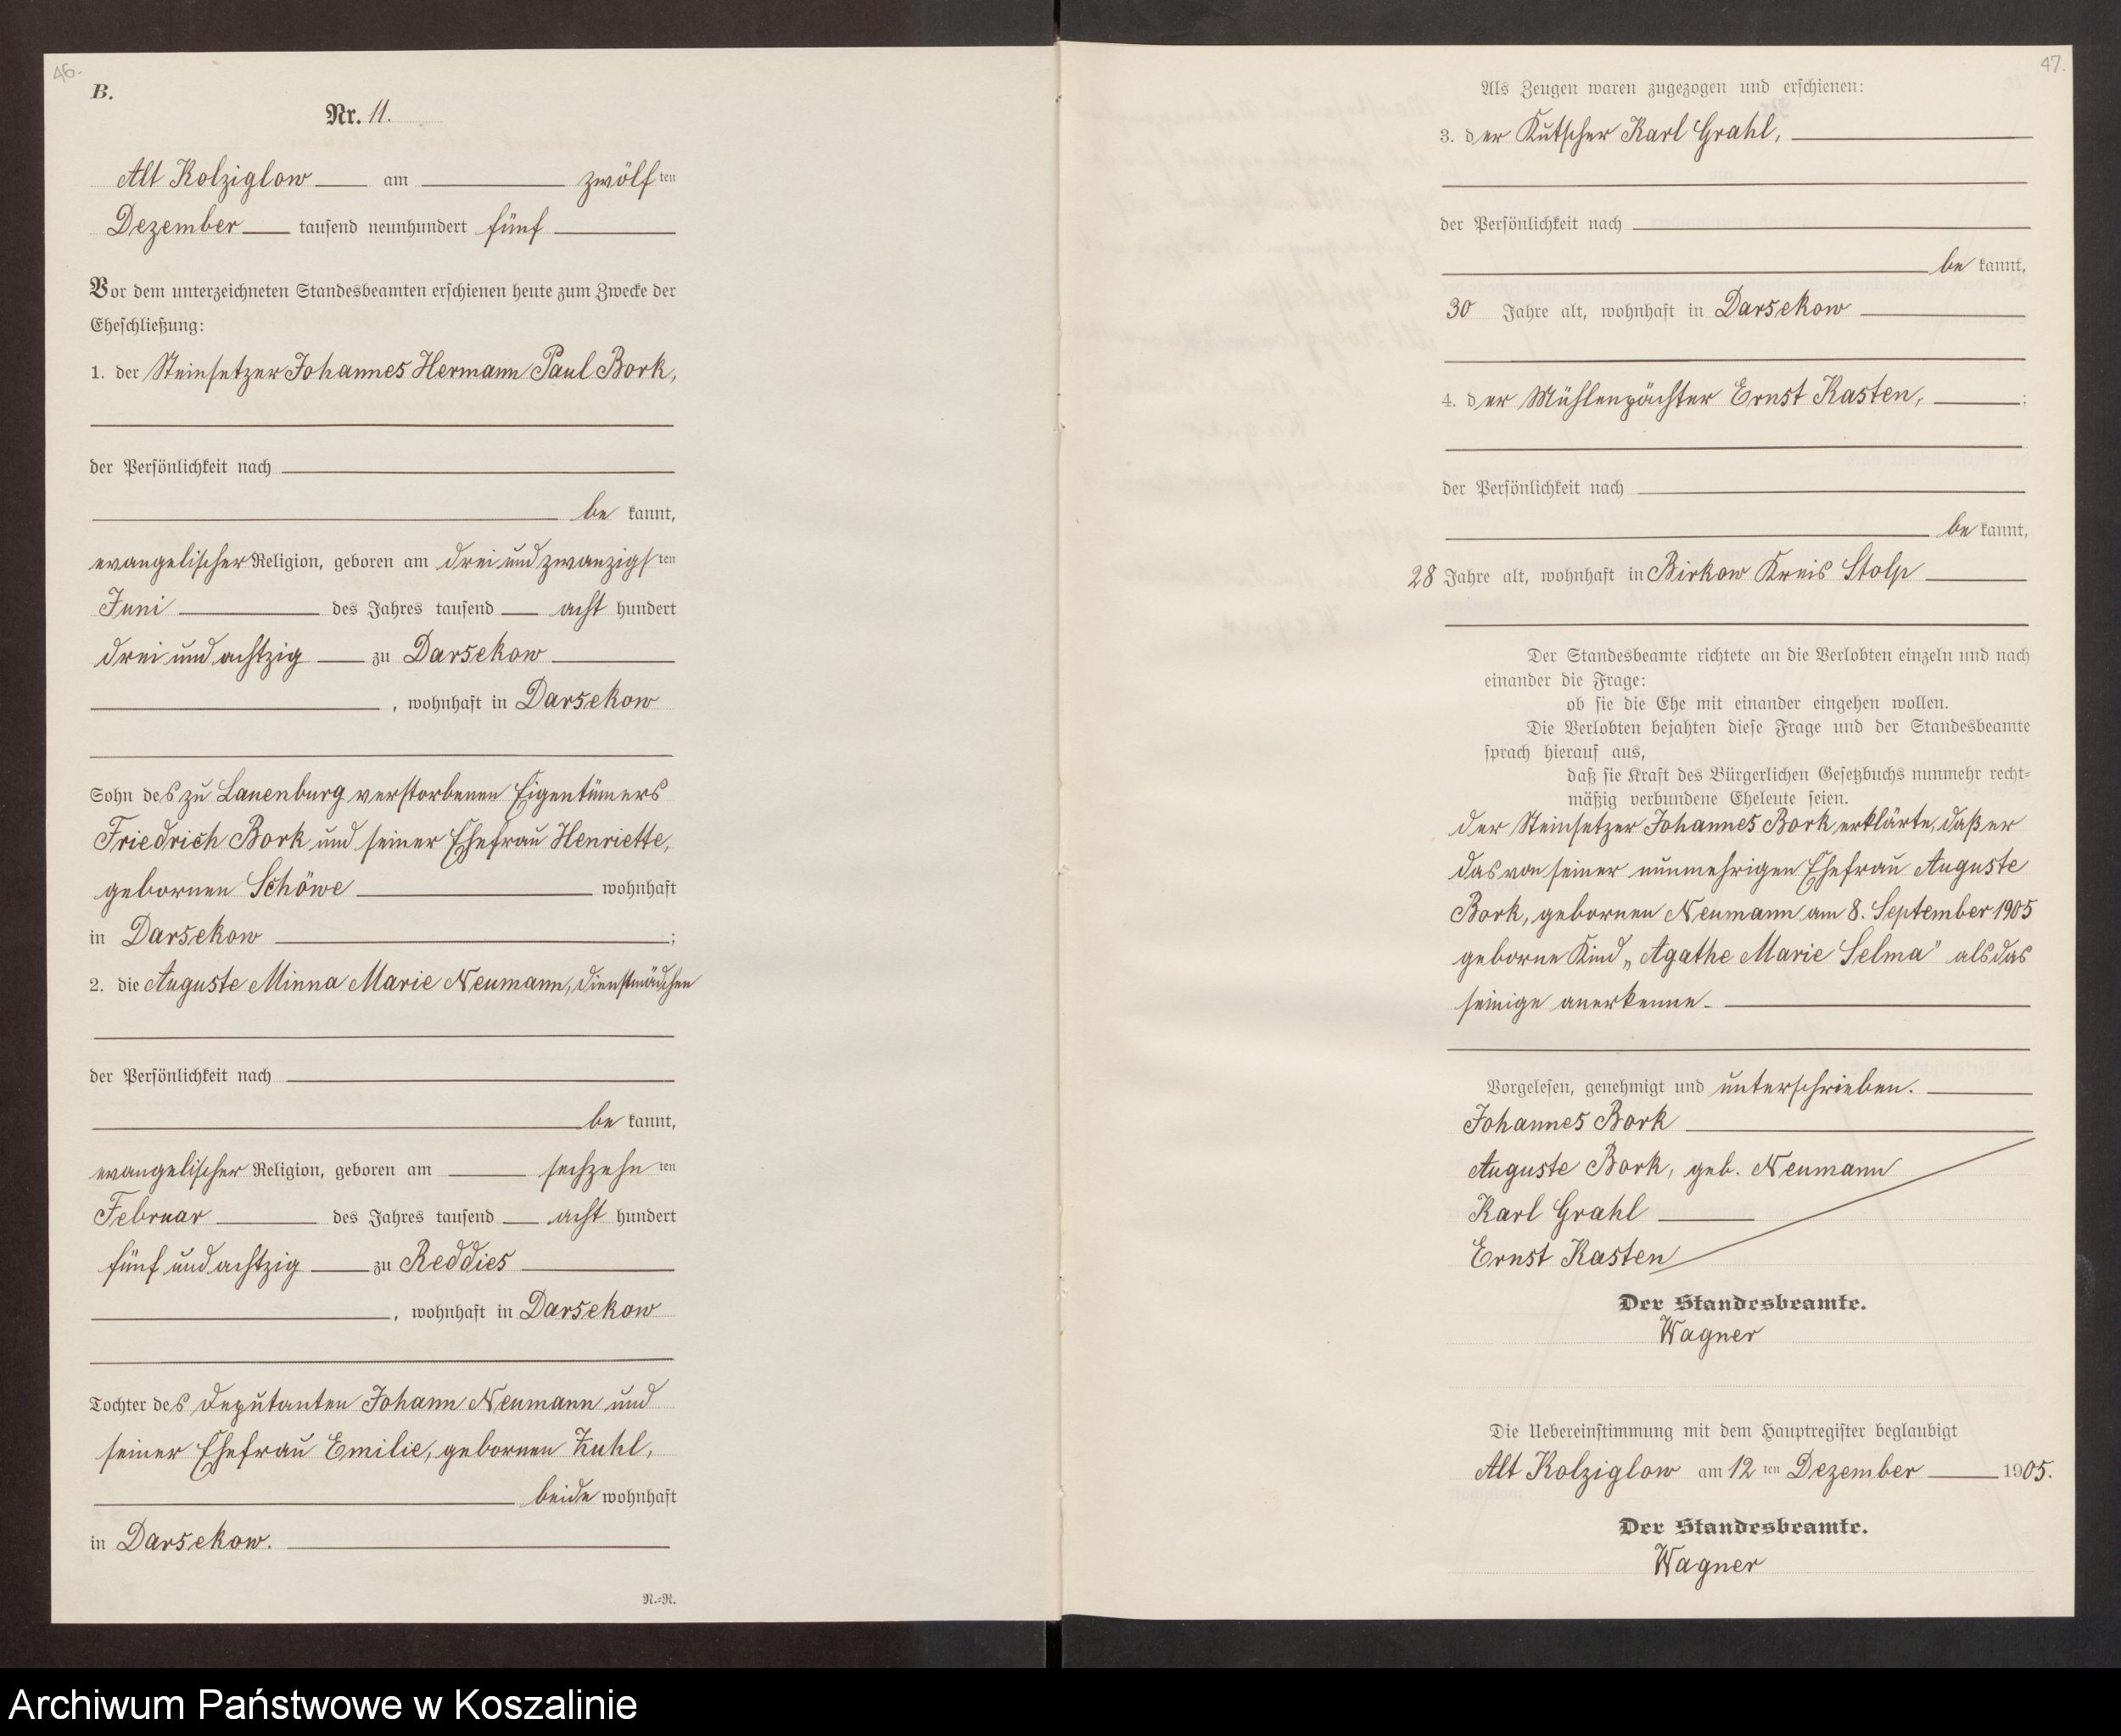 46.
B.
Nr. 11.
Alt Kolziglow am zwölften
Dezember tausend neunhundert fünf
Vor dem unterzeichneten Standesbeamten erschienen heute zum Zwecke der
Eheschließung:
1. der Steinsetzer Johannes Hermann Paul Bork,
der Persönlichkeit nach
be kannt,
evangelischer Religion, geboren am drei und zwanzigsten
Juni des Jahres tausend acht hundert
drei und achtzig zu Darsekow
, wohnhaft in Darsekow
Sohn des zu Lauenburg verstorbenen Eigentümers
Friedrich Bork und seiner Ehefrau Henriette,
gebornen Schöwe wohnhaft
in Darsekow ;
2. die Auguste Minna Marie Neumann, Dienstmädchen
der Persönlichkeit nach
be kannt,
evangelischer Religion, geboren am sechzehnten
Februar des Jahres tausend acht hundert
fünf und achtzig zu Reddies
, wohnhaft in Darsekow
Tochter des Deputanten Johann Neumann und
seiner Ehefrau Emilie, gebornen Kuhl,
beide wohnhaft
in Darsekow.
N.=R.
47.
Als Zeugen waren zugezogen und erschienen:
3. der Kutscher Karl Grahl,
der Persönlichkeit nach
be kannt,
30 Jahre alt, wohnhaft in Darsekow
4. der Mühlenpächter Ernst Kasten, ;
der Persönlichkeit nach
be kannt,
28 Jahre alt, wohnhaft in Birkow Kreis Stolp
Der Standesbeamte richtete an die Verlobten einzeln und nach
einander die Frage:
ob sie die Ehe mit einander eingehen wollen.
Die Verlobten bejahten diese Frage und der Standesbeamte
sprach hierauf aus,
daß sie Kraft des Bürgerlichen Gesetzbuchs nunmehr recht=
mäßig verbundene Eheleute seien.
der Steinsetzer Johannes Bork erklärte, daß er
das von seiner nunmehrigen Ehefrau Auguste
Bork, gebornen Neumann am 8. September 1905
geborne Kind „Agathe Marie Selma" als das
seinige anerkenne.
Vorgelesen, genehmigt und unterschrieben.
Johannes Bork
Auguste Bork, geb. Neumann
Karl Grahl
Ernst Kasten
Der Standesbeamte.
Wagner
Die Uebereinstimmung mit dem Hauptregister beglaubigt
Alt Kolziglow am 12 ten Dezember 1905.
Der Standesbeamte.
Wagner
Archiwum Państwowe w Koszalinie